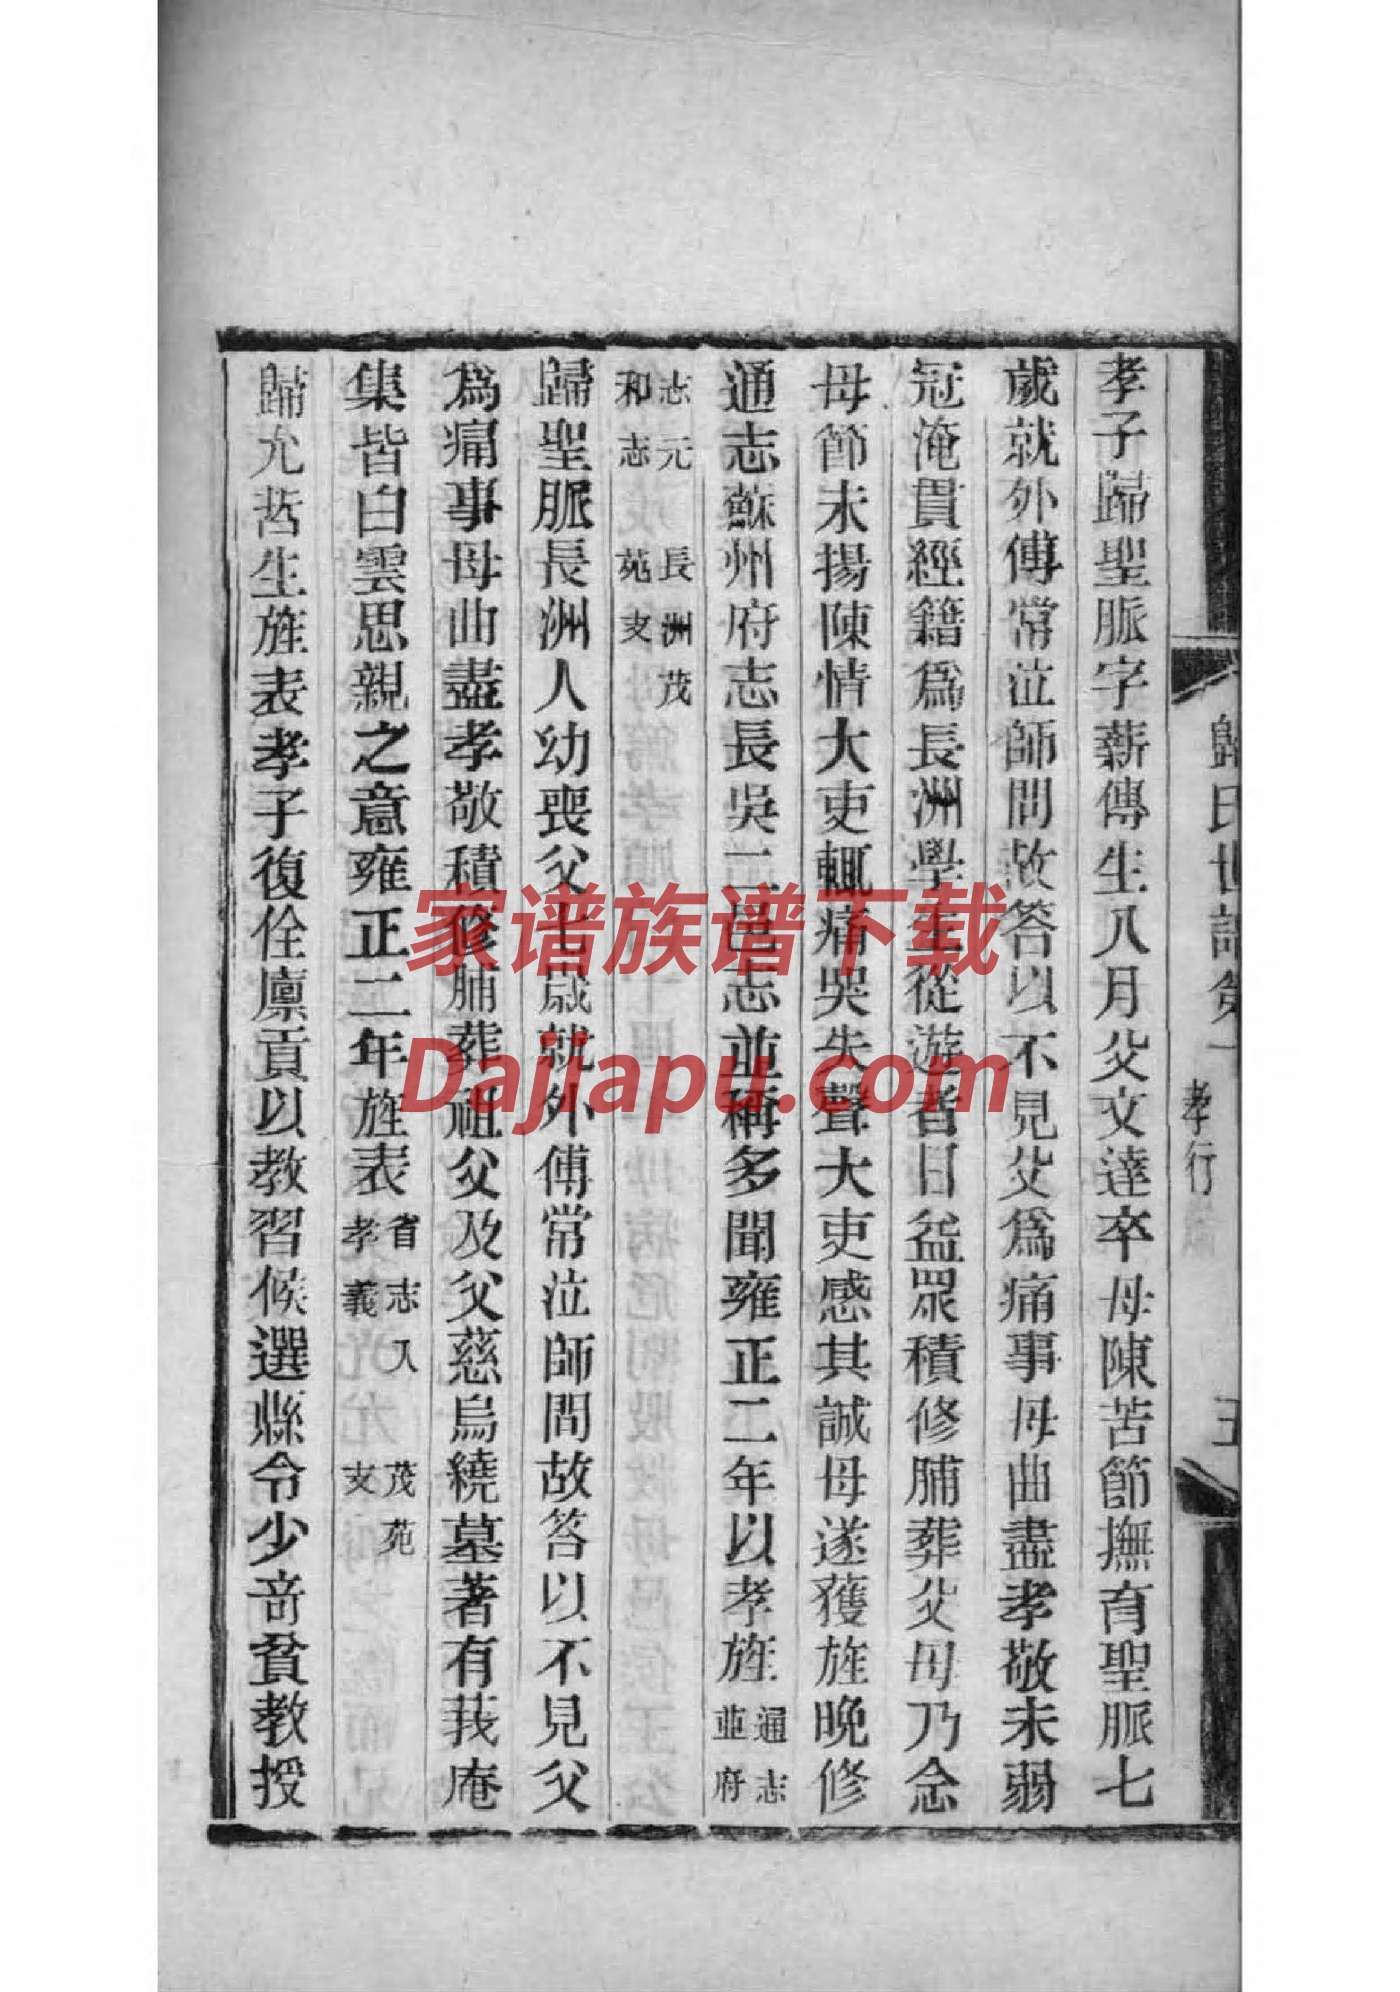 歸氏世譜 孝行
孝子歸聖脈字薪傳生八月父文達卒母陳苦節撫育聖脈七
歲就外傅常泣師問故答以不見父爲痛事母曲盡孝敬未弱
冠淹貫經籍爲長洲學生從遊者日益眾積修脯葬父母乃念
母節未揚陳情大吏輒痛哭失聲大吏感其誠母遂獲旌晚修
通志蘇州府志長吳二邑志並稱多聞雍正二年以孝旌 通志並府
志元和志 長洲茂苑文
歸聖脈長洲人幼喪父七歲就外傅常泣師問故答以不見父
爲痛事母曲盡孝敬積修脯葬祖父及父慈烏繞墓著有莪庵
集皆白雲思親之意雍正二年旌表 省志入孝義 茂苑文
歸允哲生旌表孝子復佺廩貢以教習候選縣令少奇貧教授
家谱族谱下载
Dajiapu.com